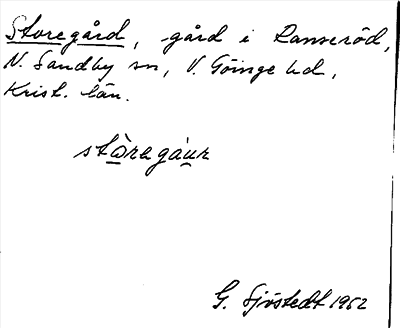 Storegård, gård i Ranseröd,
N. Sandby sn, V. Göinge hd,
Krist. län.
stòregåur
G. Sjöstedt 1952